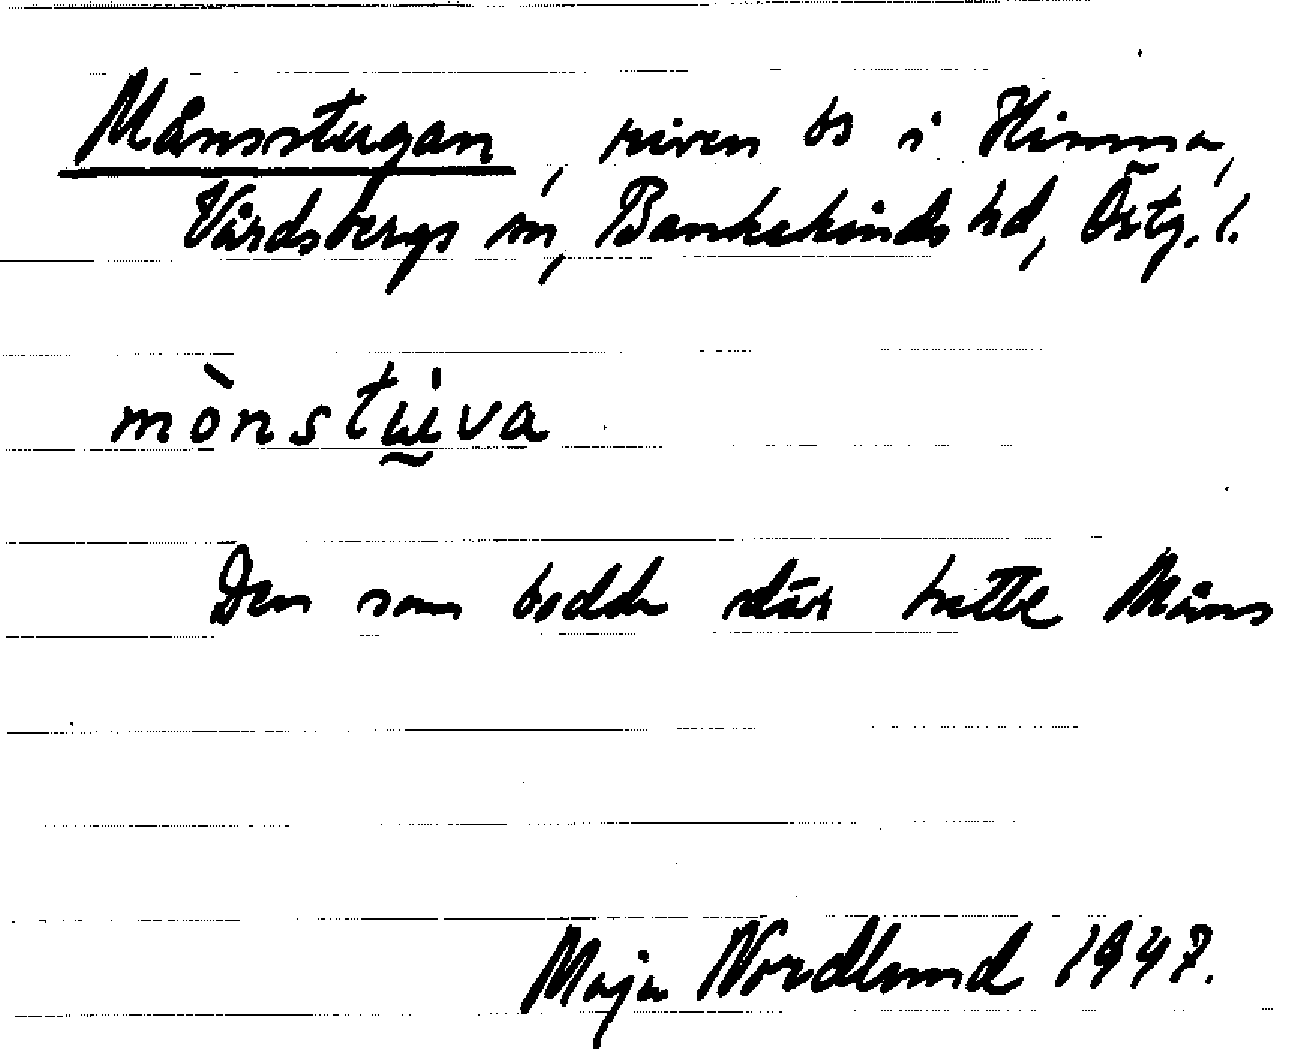 Månsstugan, riven bs i Himna,
Vårdsbergs sn, Bankekinds hd, Östg. l.
mònstṵ̇va
Den som bodde där hette Måns
Maja Nordlund 1947.